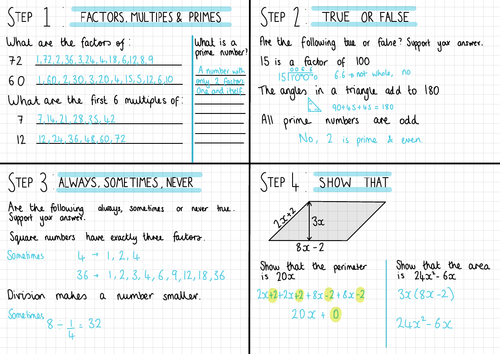 STEP 1: FACTORS, MULTIPES & PRIMES
What are the factors of:
72 1,72,2,36,3,24,4,18,6,12,8,9
60 1,60,2,30,3,20,4,15,5,12,6,10
What are the first 6 multiples of:
7 7,14,21,28,35,42
12 12,24,36,48,60,72
What is a
prime number?
A number with
only 2 factors
One and itself.
STEP 2: TRUE OR FALSE
Are the following true or false? Support your answer.
15 is a factor of 100
6.6 → not whole, no
The angles in a triangle add to 180
90+45+45=180
All prime numbers are odd.
No, 2 is prime & even.
STEP 3: ALWAYS, SOMETIMES, NEVER
Are the following always, sometimes or never true.
Support your answer.
Square numbers have exactly three factors.
Sometimes 4 → 1, 2, 4
36 → 1, 2, 3, 4, 6, 9, 12, 18, 36
Division makes a number smaller.
Sometimes
8 - 1/4 = 32
STEP 4: SHOW THAT
2x+2
3x
8x-2
Show that the perimeter
is 20x
2x+2+2x+2+8x-2+8x-2
20x + 0
Show that the area
is 24x²-6x
3x(8x-2)
24x²-6x